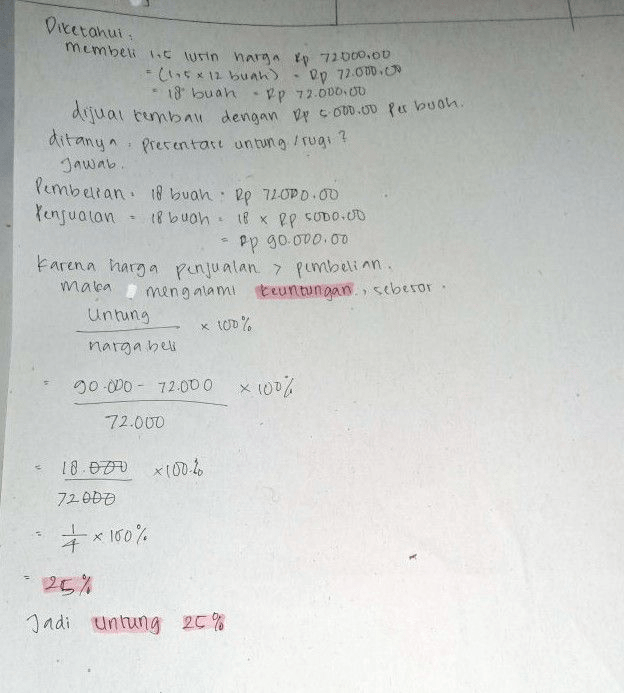 Diketahui :
membeli 1,5 lusin harga Rp 72000,00
= (1,5 x 12 buah) = Rp 72.000,00
= 18 buah = Rp 72.000.00
dijual kembali dengan Rp 5000.00 per buah.
ditanya : presentase untung / rugi ?
Jawab.
Pembelian = 18 buah = Rp 72000.00
Penjualan = 18 buah = 18 x Rp 5000.00
= Rp 90.000.00
Karena harga penjualan > pembelian.
maka mengalami keuntungan, sebesar.
Untung
x 100%
harga beli
= 90.000 - 72.000 x 100%
72.000
= 18.000 x 100%
72000
= 1/4 x 100%
= 25%
Jadi untung 25%